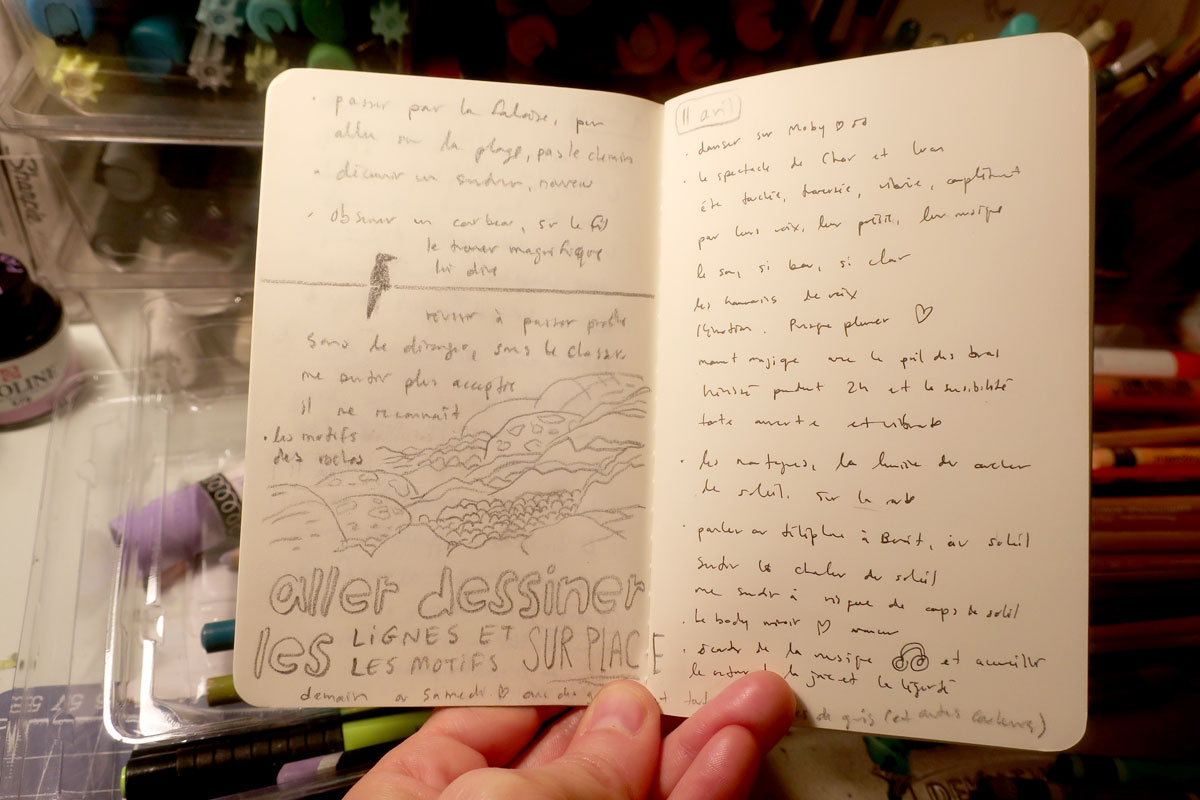 • passer par la falaise, pour
aller sur la plage, pas le chemin
• découvrir un sentier, nouveau
• observer un corbeau, sur le fil
le trouver magnifique
lui dire
réussir à passer proche
sans le déranger, sans le chasser
me sentir plus acceptée
il me reconnaît
• les motifs
des roches
aller dessiner
les LIGNES ET
LES MOTIFS SUR PLACE
demain ou samedi ♡ avec des
11 avril
• danser sur Moby ♡
• le spectacle de Char et
été touchée, traversée, vibrée, complètement
par leurs voix, leur poésie, leur musique
le son, si beau, si clair
les harmonies de voix
l'émotion. Presque pleurer ♡
moment magique avec le poil des bras
hérissé pendant 2h et la sensibilité
toute ouverte et vibrante
• les nuages, la lumière du coucher
de soleil. Sur la route
• parler au téléphone à Benoit, au soleil
sentir la chaleur du soleil
me sentir à risque de coups de soleil
• le body ♡
• écouter de la musique et accueillir
le retour de la joie et la légèreté
de gris (et autres couleurs)
Sharpie
OLINE